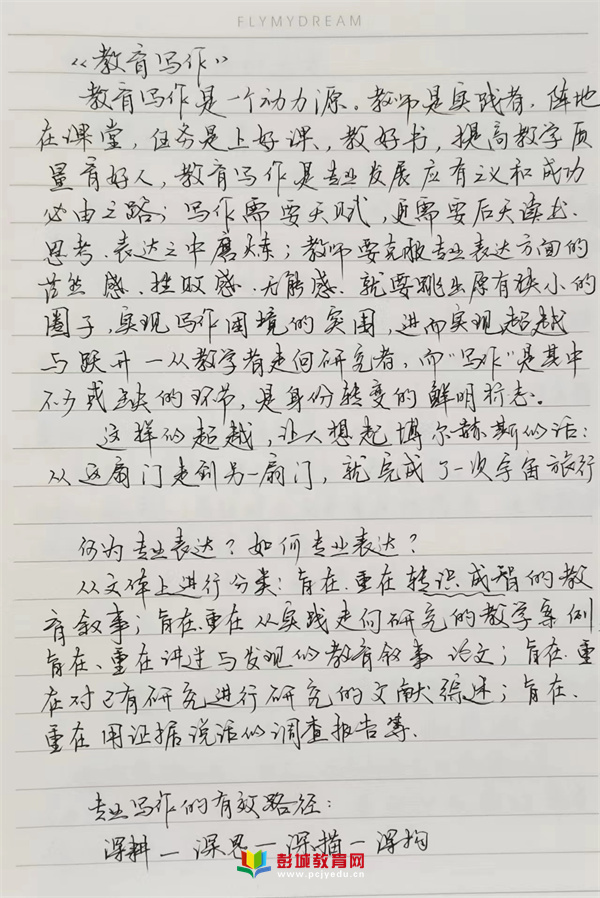 FLYMYDREAM
《教育写作》
教育写作是一个动力源。教师是实践者，阵地
在课堂，任务是上好课、教好书，提高教学质
量育好人，教育写作是专业发展应有之义和成功
必由之路；写作需要天赋，更需要后天读书、
思考、表达之中磨炼；教师要克服专业表达方面的
茫然感、挫败感、无能感，就要跳出原有狭小的
圈子，实现写作困境的突围，进而实现超越
与跃升—从教学者走向研究者，而“写作”是其中
不可或缺的环节，是身份转变的鲜明标志。
这样的超越，让人想起博尔赫斯的话：
从这扇门走到另一扇门，就完成了一次宇宙旅行
何为专业表达？如何专业表达？
从文体上进行分类：旨在、重在转识成智的教
育叙事；旨在、重在从实践走向研究的教学案例
旨在、重在讲述与发现的教育叙事论文；旨在、重
在对已有研究进行研究的文献综述；旨在、
重在用证据说话的调查报告等.
专业写作的有效路径：
深耕—深思—深描—深构
彭城教育网
www.pcjyedu.cn